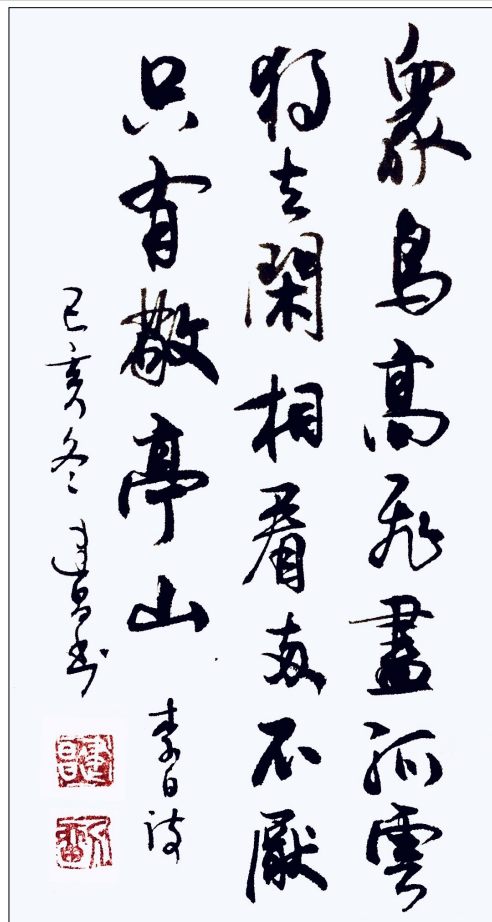 衆鳥高飛盡孤雲
獨去閑相看兩不厭
只有敬亭山
李白詩
己亥冬建昌書
建昌